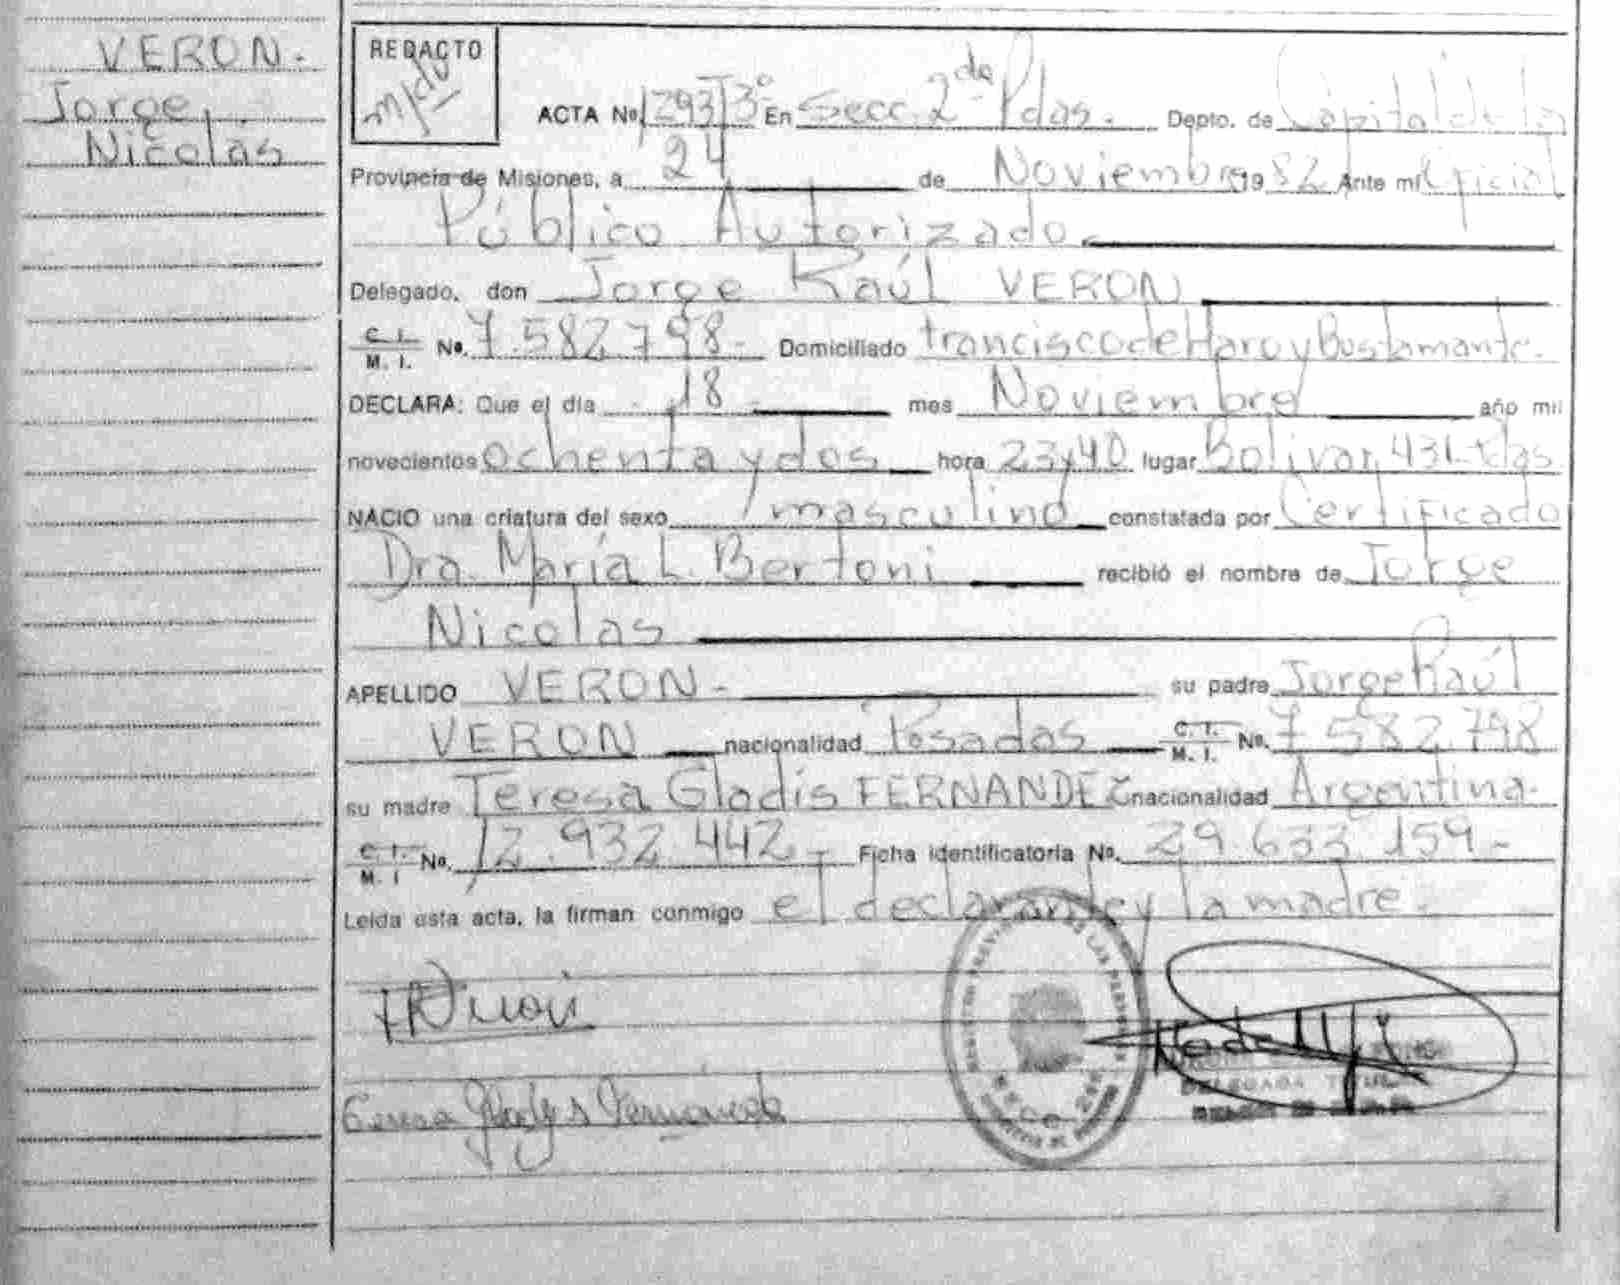 VERON.
Jorge
Nicolás
REDACTO
ACTA No 1293 T3º En Secc. 2da Pdas. Depto. de Capital de la
Provincia de Misiones, a 24 de Noviembre 1982 Ante mi Oficial
Público Autorizado.
Delegado, don Jorge Raúl VERON
C. I. M. I. No. 7.582.798.- Domiciliado Francisco de Haro y Bustamante.
DECLARA: Que el día 18 mes Noviembre año mil
novecientos ochenta y dos hora 23y40 lugar Bolivar 431-Pdas
NACIO una criatura del sexo masculino constatada por Certificado
Dra. María L. Bertoni recibió el nombre de Jorge
Nicolás
APELLIDO VERON.- su padre Jorge Raúl
VERON nacionalidad Posadas C. I. M. I. No. 7.582.798
su madre Teresa Gladis FERNANDEZ nacionalidad Argentina.
C. I. M. I No. 12.932.442.- Ficha identificatoria No. 29.633.159.-
Leída esta acta, la firman conmigo el declarante y la madre.
Teresa Gladys Fernandez
DELEGADA TITULAR